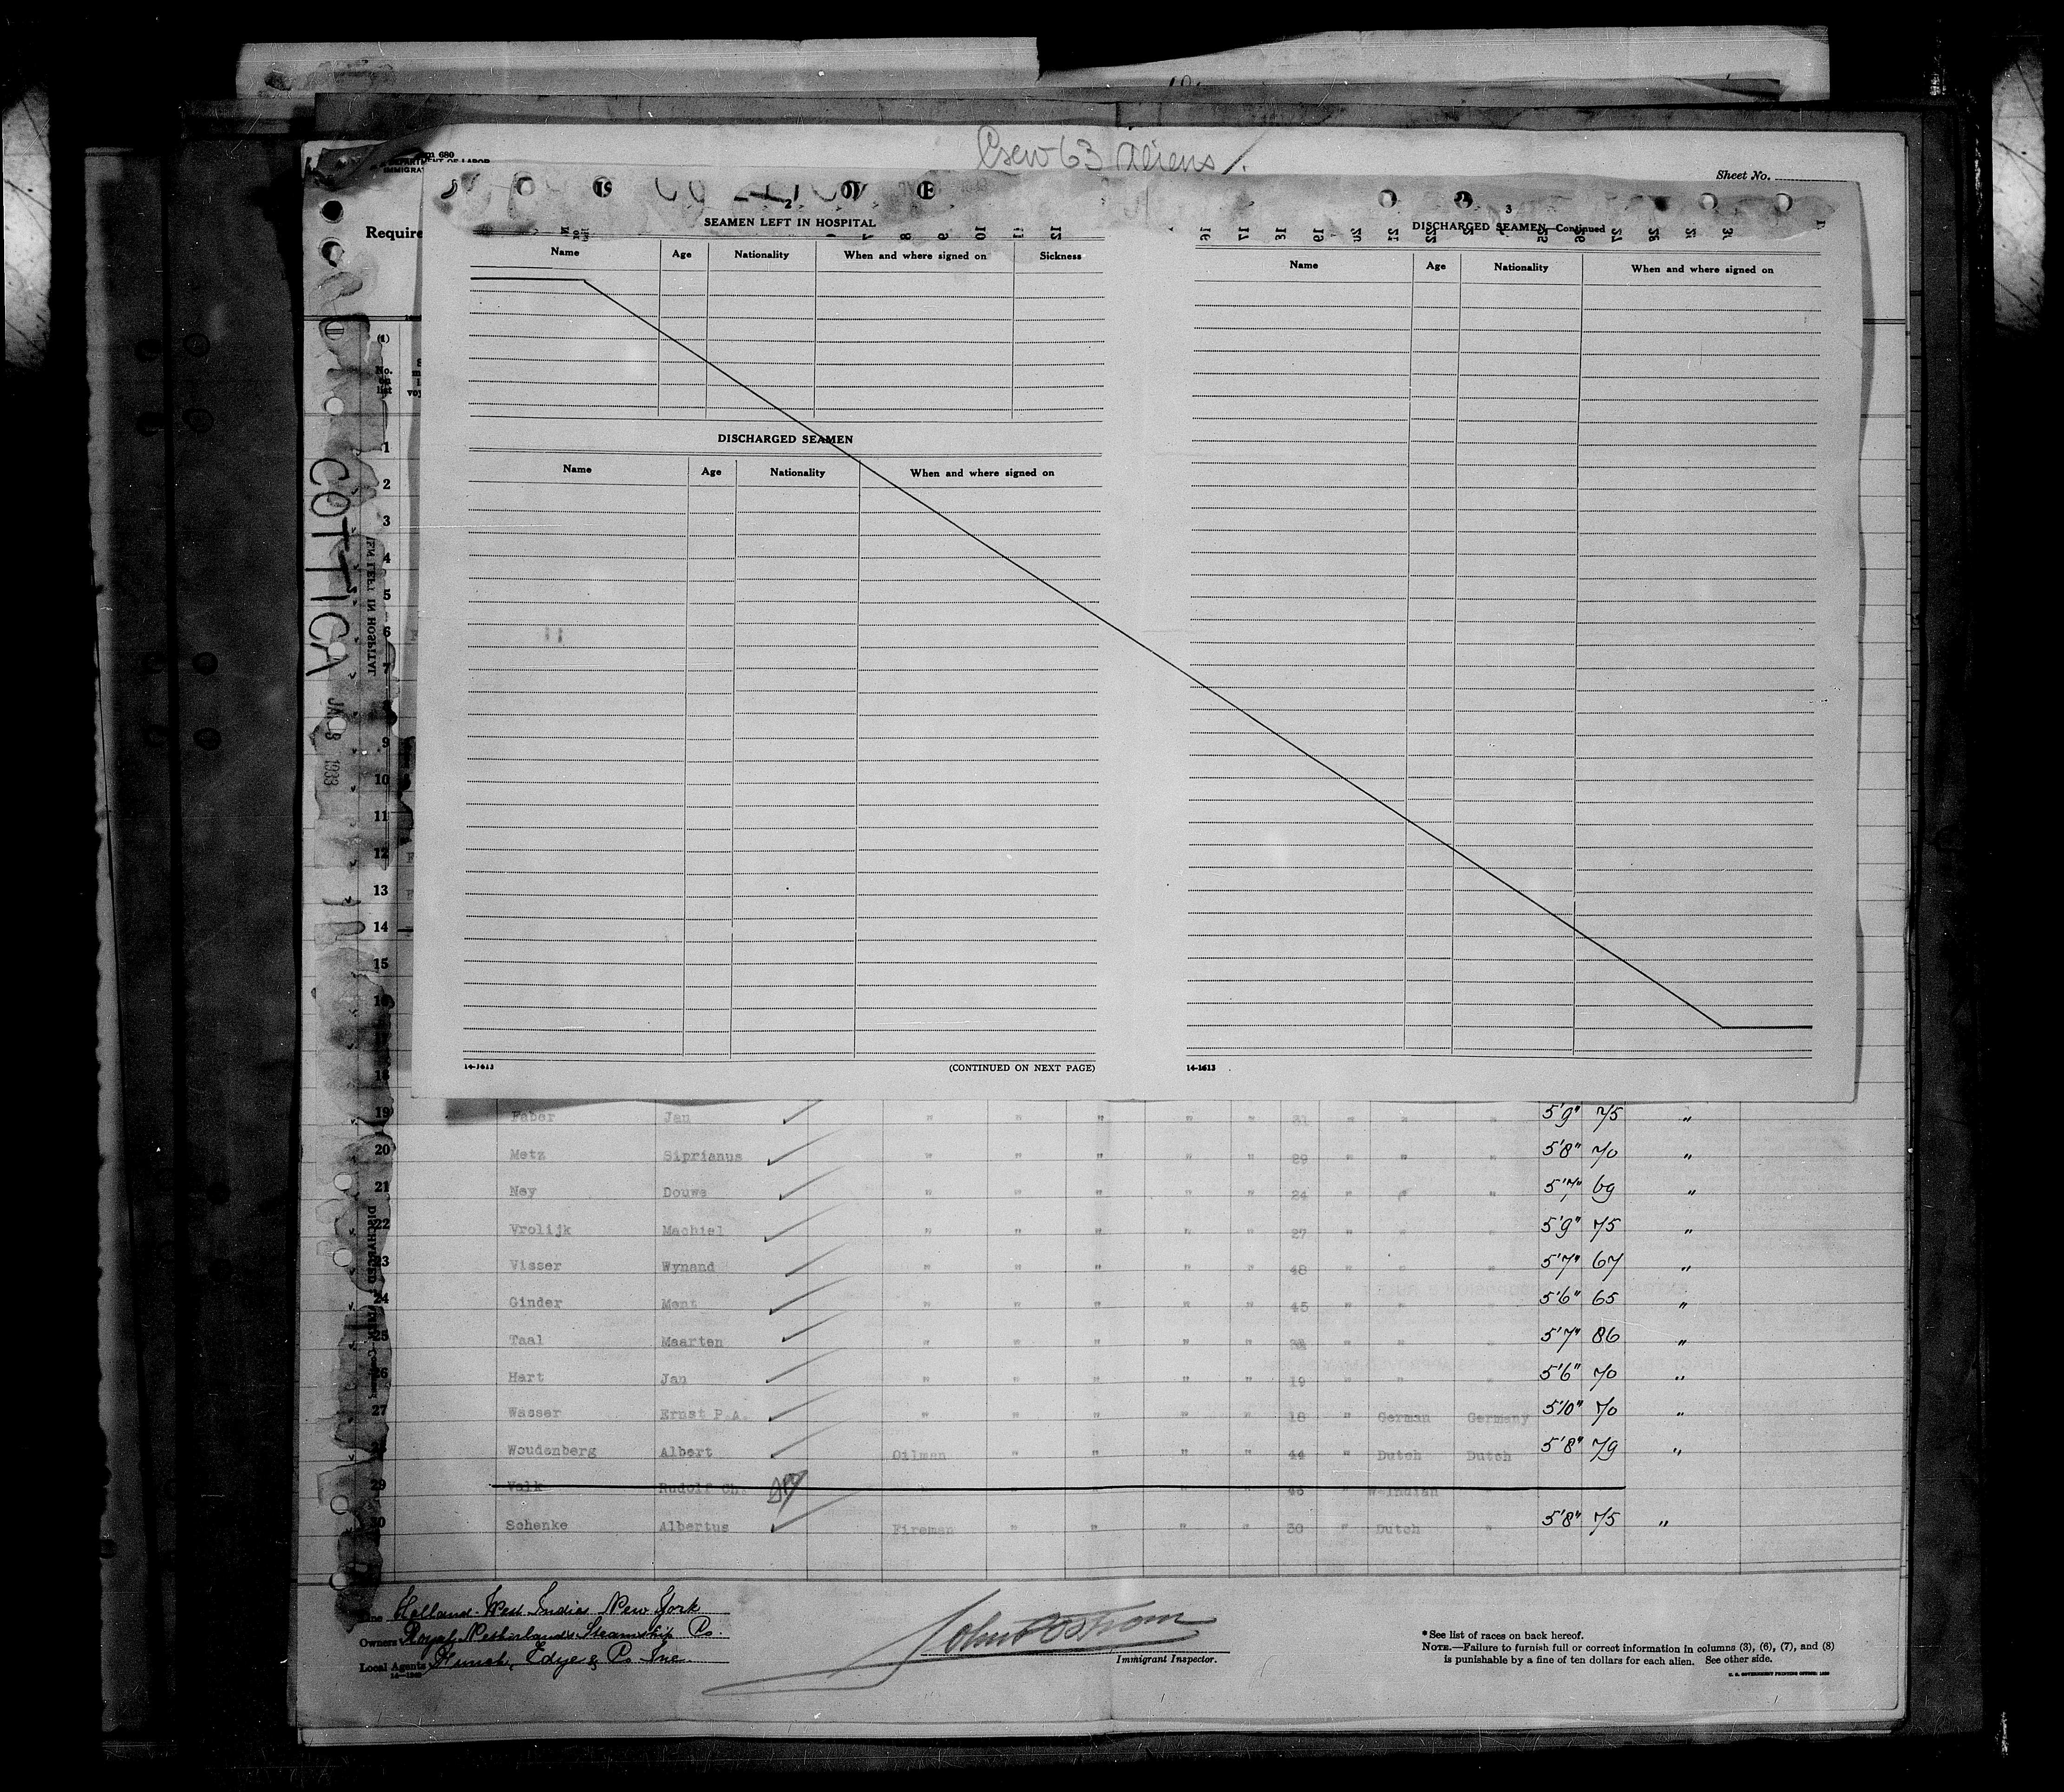 Crew 63 Aliens
Sheet No.
680
IMMIGRAT
Require
2
SEAMEN LEFT IN HOSPITAL
Name Age Nationality When and where signed on Sickness
DISCHARGED SEAMEN
Name Age Nationality When and where signed on
14-1613 (CONTINUED ON NEXT PAGE)
3
DISCHARGED SEAMEN—Continued
Name Age Nationality When and where signed on
14-1613
COTTICA
(1)
No. on list
1
2
3
4
5
6
7
9
10
11
12
13
14
15
16
18
19 Faber Jan " " " " " " " " 5'9" 75 "
20 Metz Siprianus " " " " " 29 " " " 5'8" 70 "
21 Ney Douwe " " " " " 24 " " " 5'7" 69 "
22 Vrolijk Machiel " " " " " 27 " " " 5'9" 75 "
23 Visser Wynand " " " " " 48 " " " 5'7" 67 "
24 Ginder Ment " " " " " 45 " " " 5'6" 65 "
25 Taal Maarten " " " " " " " " 5'7" 86 "
26 Hart Jan " " " " " 19 " " " 5'6" 70 "
27 Wasser Ernst P.A. " " " " " 18 " German Germany 5'10" 70 "
Woudenberg Albert Oilman " " " " 44 " Dutch Dutch 5'8" 79 "
29 Valk Rudolf Ch. " " " " " 46 " W-Indian "
30 Schenke Albertus Fireman " " " " 30 " Dutch " 5'8" 75 "
Line Holland West Indies New York
Owners Royal Netherlands Steamship Co.
Local Agents Funch, Edye & Co Inc.
Immigrant Inspector.
* See list of races on back hereof.
NOTE.—Failure to furnish full or correct information in columns (3), (6), (7), and (8)
is punishable by a fine of ten dollars for each alien. See other side.